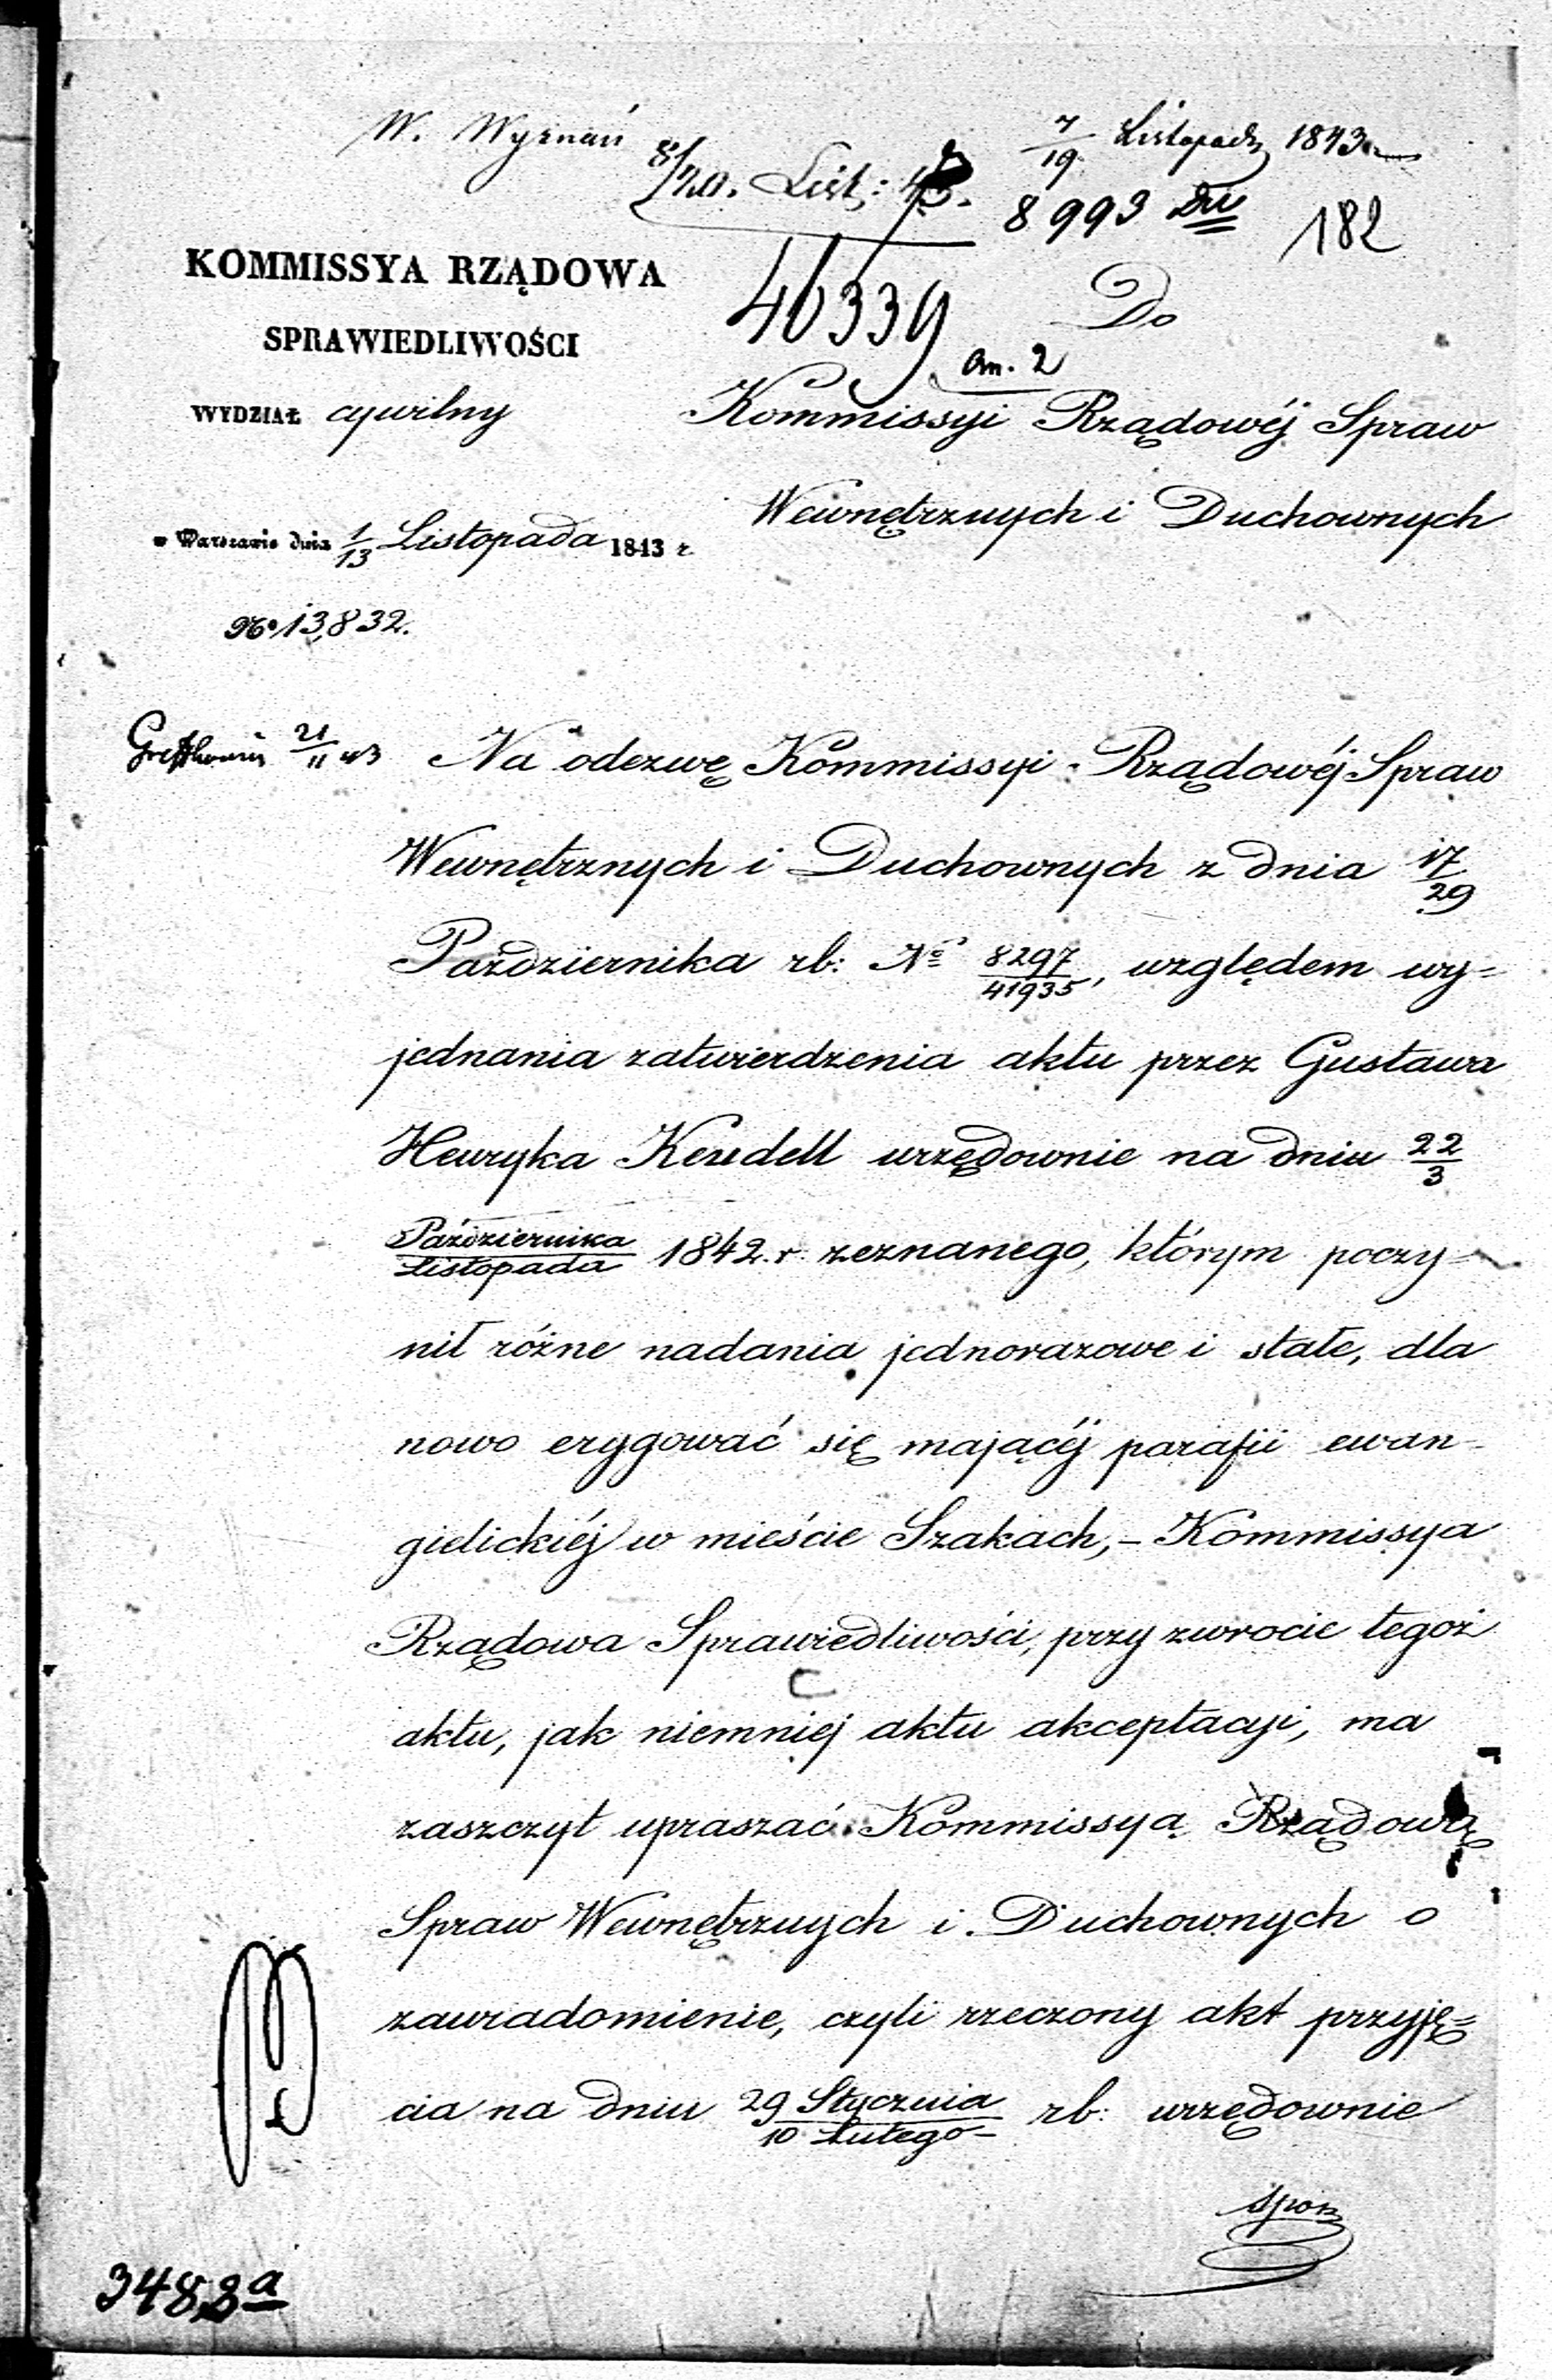 W. Wyznań
7/19 Listopada 1843
8/20. List: 43.
8993 182
46339
an. 2
KOMMISSYA RZĄDOWA
SPRAWIEDLIWOŚCI
WYDZIAŁ cywilny
w Warszawie dnia 1/13 Listopada 1843 r.
No 13,832.
Do
Kommissyi Rządowéj Spraw
Wewnętrznych i Duchownych
21/11 43
Na odezwę Kommissyi Rządowéj Spraw
Wewnętrznych i Duchownych z dnia 17/29
Października rb: No 8297/41935, względem wy=
jednania zatwierdzenia aktu przez Gustawa
Henryka Keudell urzędownie na dniu 22/3
Października/Listopada 1842 r. zeznanego, którym poczy=
nił różne nadania jednorazowe i stałe, dla
nowo erygować się mającéj parafii ewan-
gielickiéj w mieście Szakach, – Kommissya
Rządowa Sprawiedliwości, przy zwrocie tegoż
aktu, jak niemniej aktu akceptacyi, ma
zaszczyt upraszać Kommissyą Rządową
Spraw Wewnętrznych i Duchownych o
zawiadomienie, czyli rzeczony akt przyję=
cia na dniu 29 Stycznia/10 Lutego rb: urzędownie
spor
3488a